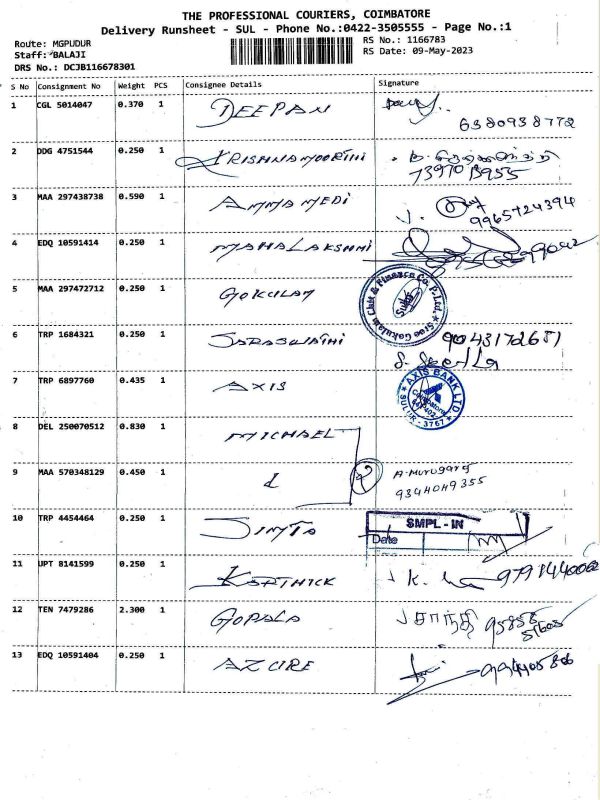 THE PROFESSIONAL COURIERS, COIMBATORE
Delivery Runsheet - SUL - Phone No.:0422-3505555 - Page No.:1
Route: MGPUDUR
RS No.: 1166783
Staff: BALAJI
RS Date: 09-May-2023
DRS No.: DCJB116678301
S No Consignment No Weight PCS Consignee Details Signature
1 CGL 5014047 0.370 1 DEEPAN
6380938772
2 DDG 4751544 0.250 1 KRISHNAMOORTHI
73970 13955
3 MAA 297438738 0.590 1 AMMA MEDI
9965724394
4 EDQ 10591414 0.250 1 MAHALAKSHMI
5 MAA 297472712 0.250 1 GOKULAM
Sree Gokulam Chit & Finance Co. P. Ltd.
6 TRP 1684321 0.250 1 SARASWATHI 9043172681
7 TRP 6897760 0.435 1 AXIS
AXIS BANK LTD
SULUR - 3767
8 DEL 250070512 0.830 1 MICHAEL
9 MAA 570348129 0.450 1 A. Murugan
9344049355
10 TRP 4454464 0.250 1 SIMTA SMPL - IN
Date
11 UPT 8141599 0.250 1 KARTHICK
12 TEN 7479286 2.300 1 GOPALA சாந்தி
13 EDQ 10591404 0.250 1 AZURE